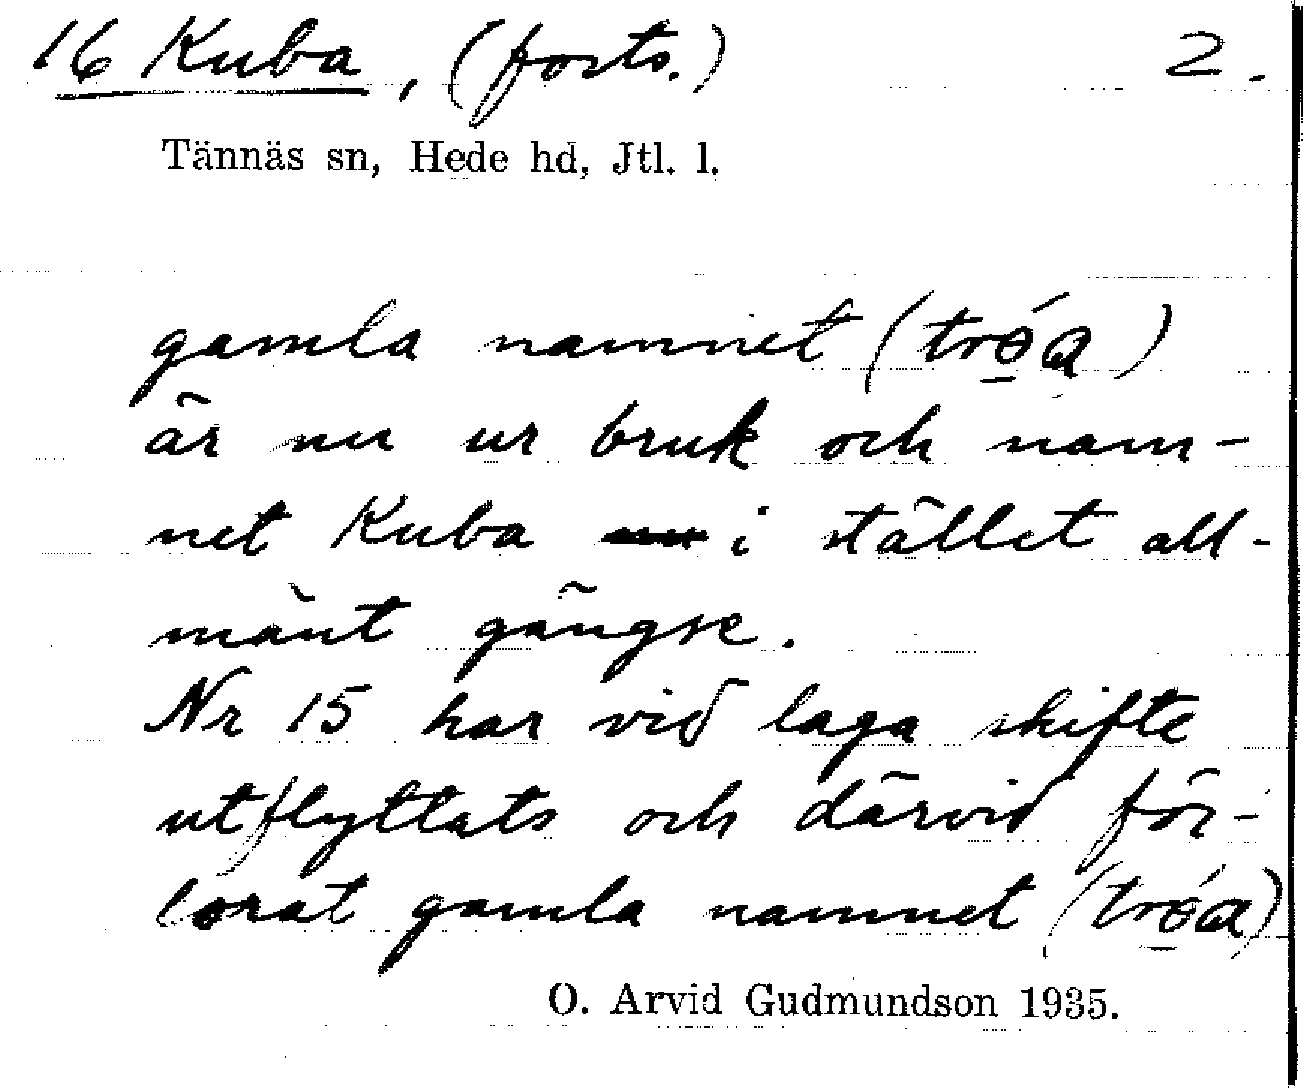 16 Kuba, (forts.) 2.
Tännäs sn, Hede hd, Jtl. l.
gamla namnet (trǿ̠a)
är nu ur bruk och nam-
net Kuba i stället all-
mänt gängse.
Nr 15 har vid laga skifte
utflyttats och därvid för-
lorat gamla namnet (trǿ̠a)
O. Arvid Gudmundson 1935.